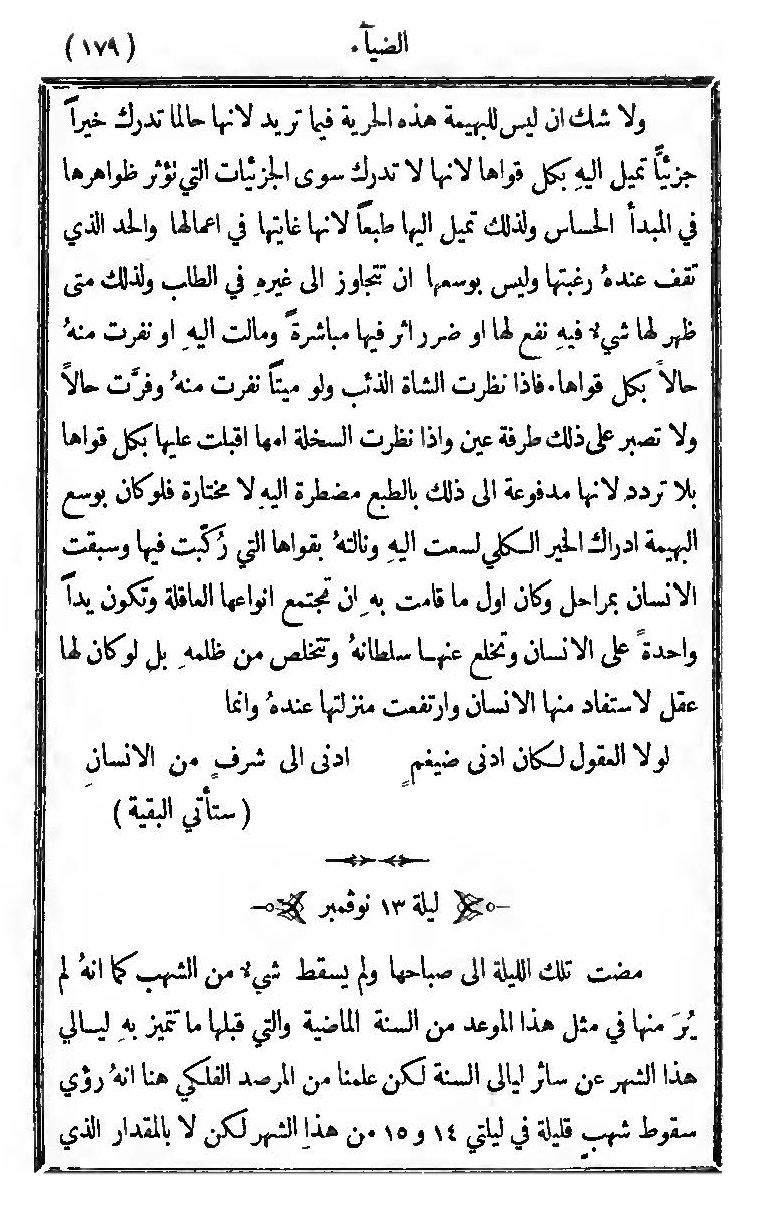 الضيآء
(١٧٩)
ولا شك ان ليس للبهيمة هذه الحرية فيما تريد لانها حالما تدرك خيراً
جزئيّاً تميل اليهِ بكل قواها لانها لا تدرك سوى الجزئيات التي تؤثر ظواهرها
في المبدأ الحساس ولذلك تميل اليها طبعاً لانها غايتها في اعمالها والحد الذي
تقف عندهُ رغبتها وليس بوسعها ان تتجاوز الى غيرهِ في الطلب ولذلك متى
ظهر لها شيء فيهِ نفع لها او ضرر اثر فيها مباشرةً ومالت اليهِ او نفرت منهُ
حالاً بكل قواها. فاذا نظرت الشاة الذئب ولو ميتاً نفرت منهُ وفرَّت حالاً
ولا تصبر على ذلك طرفة عين واذا نظرت السخلة امها اقبلت عليها بكل قواها
بلا تردد لانها مدفوعة الى ذلك بالطبع مضطرة اليهِ لا مختارة فلو كان بوسع
البهيمة ادراك الخير الكلي لسعت اليهِ ونالتهُ بقواها التي رُكّبت فيها وسبقت
الانسان بمراحل وكان اول ما قامت بهِ ان تجتمع انواعها العاقلة وتكون يداً
واحدةً على الانسان وتخلع عنها سلطانهُ وتتخلص من ظلمهِ بل لو كان لها
عقل لاستفاد منها الانسان وارتفعت منزلتها عندهُ وانما
لولا العقول لكان ادنى ضيغمٍ    ادنى الى شرفٍ من الانسانِ
(ستأتي البقية)
ليلة ١٣ نوڤمبر
مضت تلك الليلة الى صباحها ولم يسقط شيء من الشهب كما انهُ لم
يُرَ منها في مثل هذا الموعد من السنة الماضية والتي قبلها ما تتميز بهِ ليالي
هذا الشهر عن سائر ليالي السنة لكن علمنا من المرصد الفلكي هنا انهُ رؤي
سقوط شهبٍ قليلة في ليلتي ١٤ و ١٥ من هذا الشهر لكن لا بالمقدار الذي